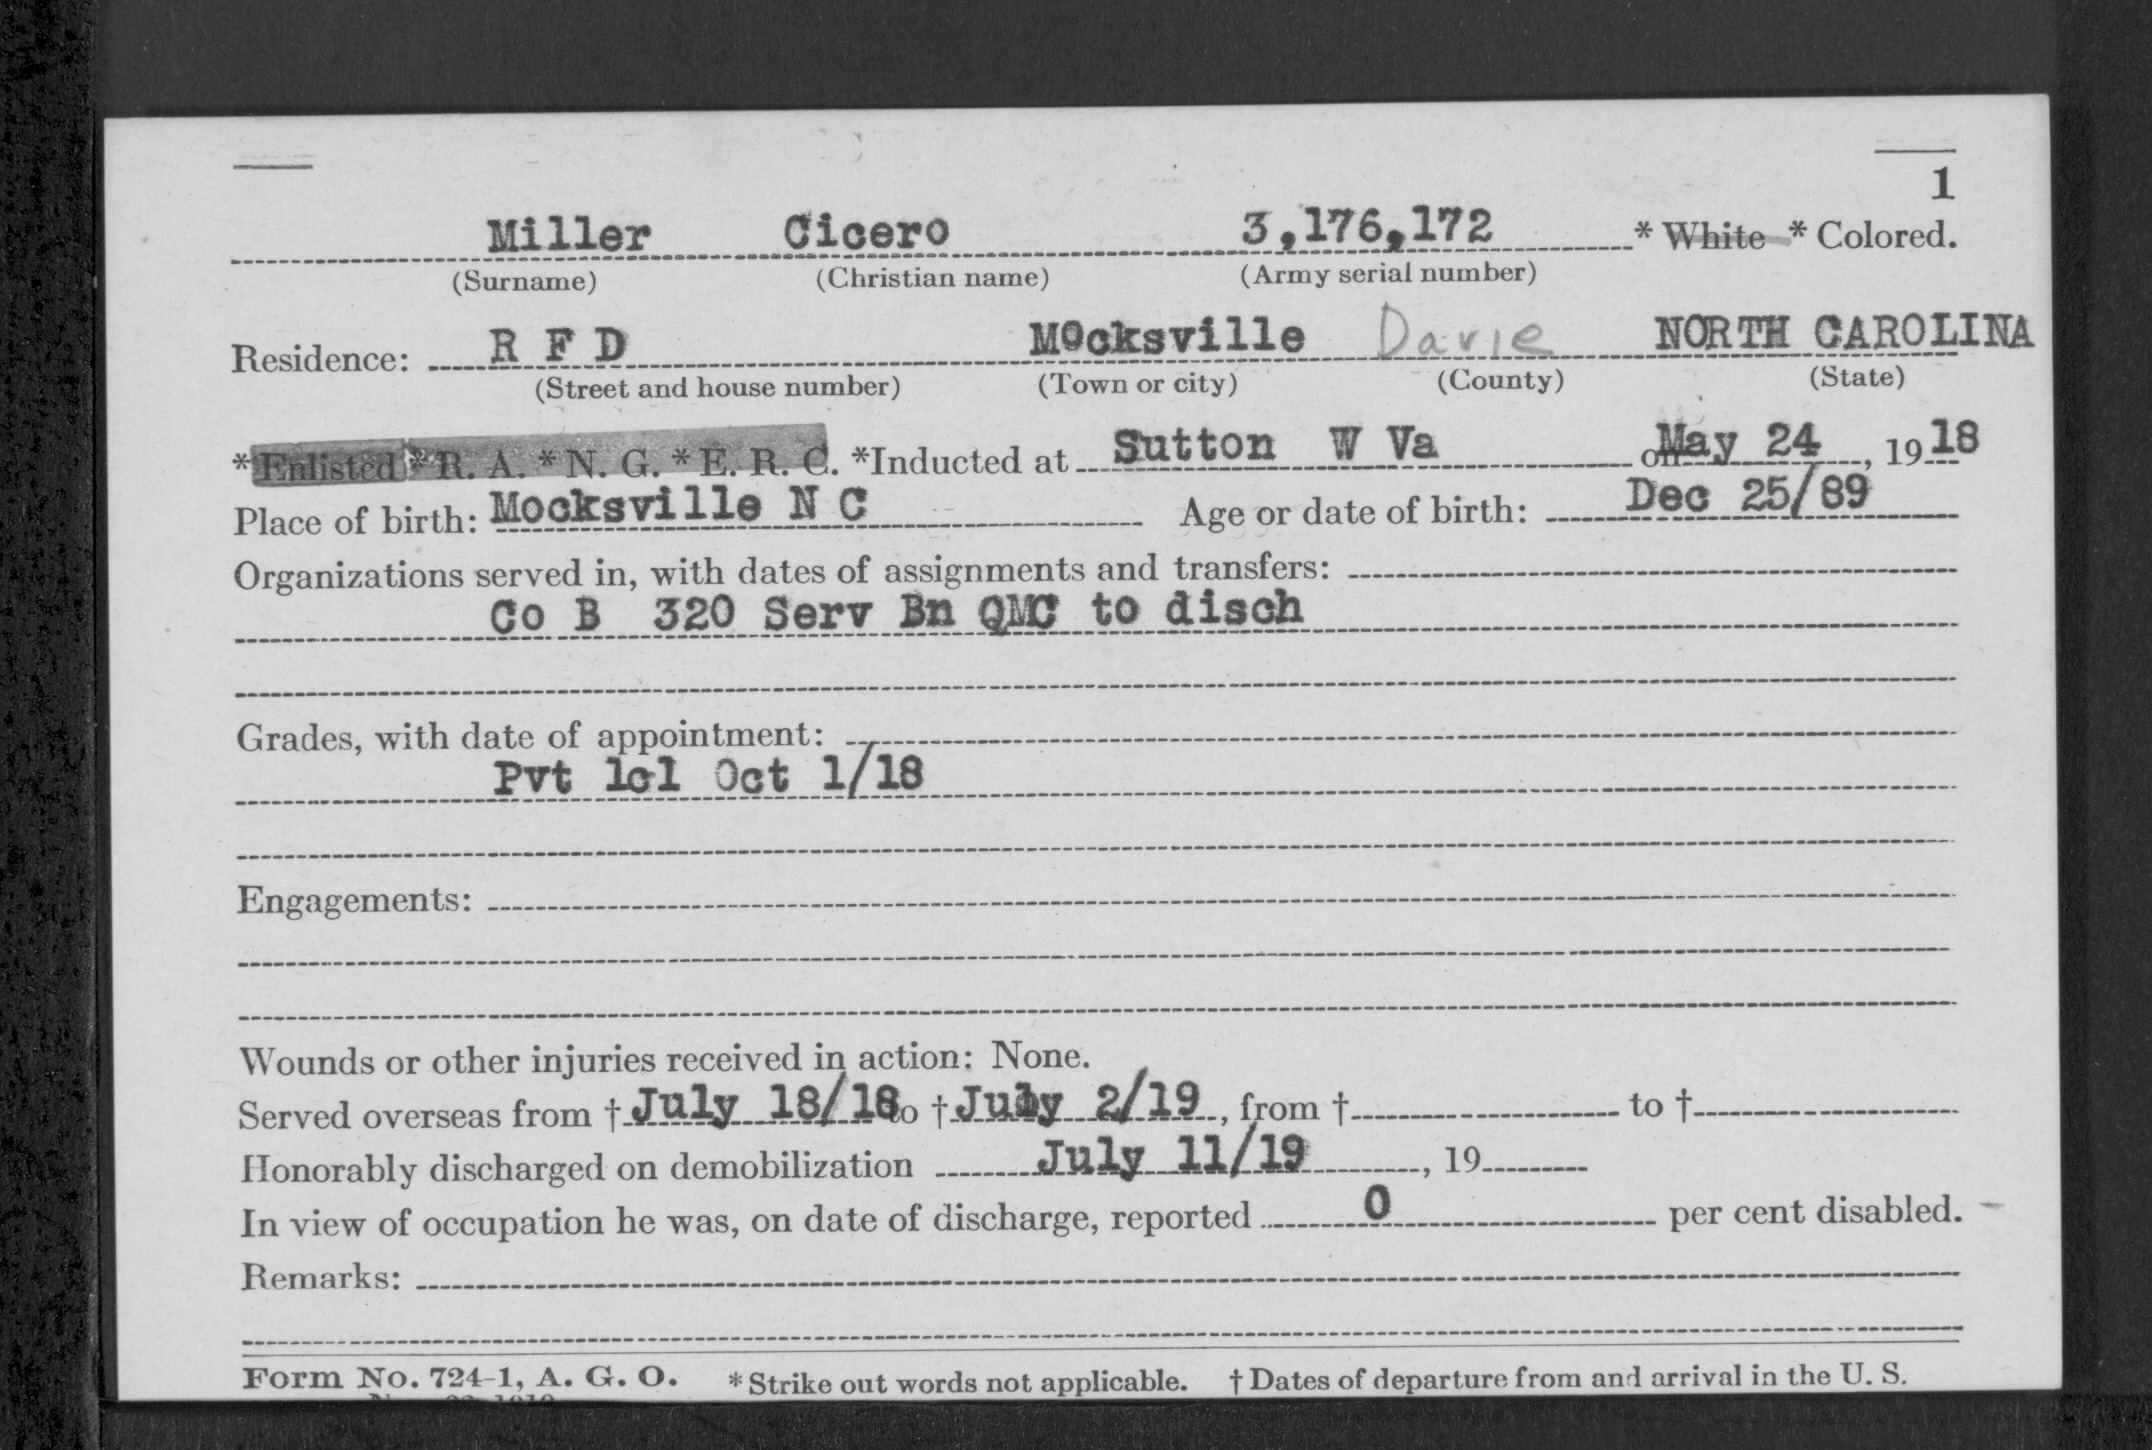 1
Miller Cicero 3,176,172 * White * Colored.
(Surname) (Christian name) (Army serial number)
Residence: R F D MOcksville Davie NORTH CAROLINA
(Street and house number) (Town or city) (County) (State)
*Enlisted *R. A. *N. G. *E. R. C. *Inducted at Sutton W Va on May 24, 1918
Place of birth: Mocksville N C Age or date of birth: Dec 25/89
Organizations served in, with dates of assignments and transfers:
Co B 320 Serv Bn QMC to disch
Grades, with date of appointment:
Pvt 1cl Oct 1/18
Engagements:
Wounds or other injuries received in action: None.
Served overseas from † July 18/18 to † July 2/19, from † to †
Honorably discharged on demobilization July 11/19, 19
In view of occupation he was, on date of discharge, reported 0 per cent disabled.
Remarks:
Form No. 724-1, A. G. O. *Strike out words not applicable. †Dates of departure from and arrival in the U. S.